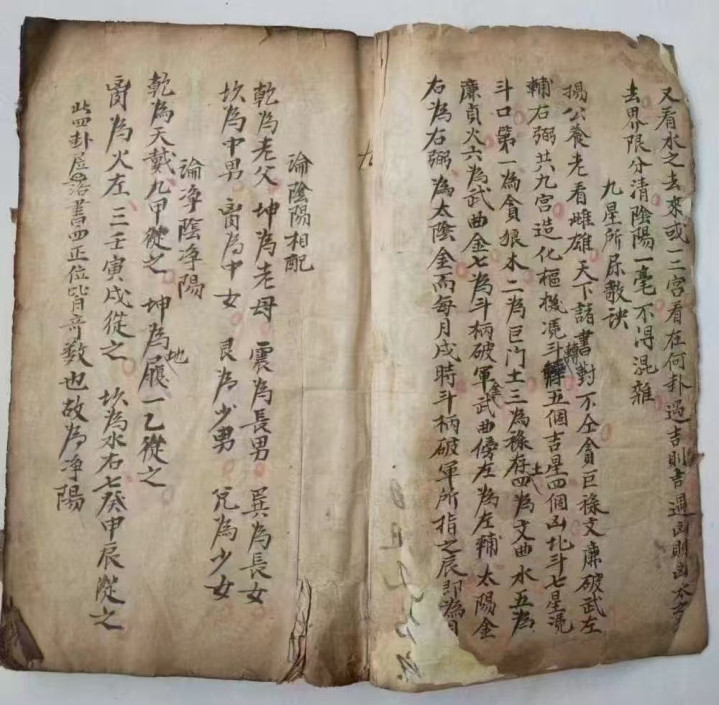 又看水之去來或一三宮看在何卦過吉則吉過凶則凶本
去界限分清陰陽一毫不淂混雜
九星所屬歌訣
楊公養老看雌雄天下諸書對不仝貪巨祿文廉破武左
輔右弼共九宮造化樞機憑斗轉五個吉星四個凶北斗七星憑
斗口第一為貪狼木二為巨门土三為祿存土四為文曲水五為
廉貞火六為武曲金七為斗柄破軍金武曲傍左為左輔太陽金
右為右弼為太陰金而每月戌時斗柄破軍所指之辰即為月
論陰陽相配
乾為老父坤為老母震為長男巽為長女
坎為中男离為中女艮為少男兌為少女
論淨陰淨陽
乾為天戴九甲從之坤為地履一乙從之
离為火左三壬寅戌從之坎為水右七癸申辰從之
此四卦居洛書四正位皆奇数也故為淨陽